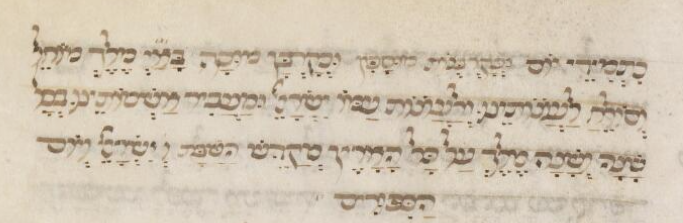 כִתְמִידֵי יוֹם מוּסָפִן מֶלֶךְ מוֹחֵל
וְסוֹלֵחַ לַעֲוֹנֹתֵינוּ וְלַעֲוֹנוֹת עַמּוֹ יִשְׂרָאֵל וּמַעֲבִיר אַשְׁמוֹתֵינוּ בְּכָל
שָׁנָה וְשָׁנָה מֶלֶךְ עַל כָּל הָאָרֶץ מְקַדֵּשׁ הַשַּׁבָּת וְיִשְׂרָאֵל וְיוֹם
הַכִּפֻּרִים